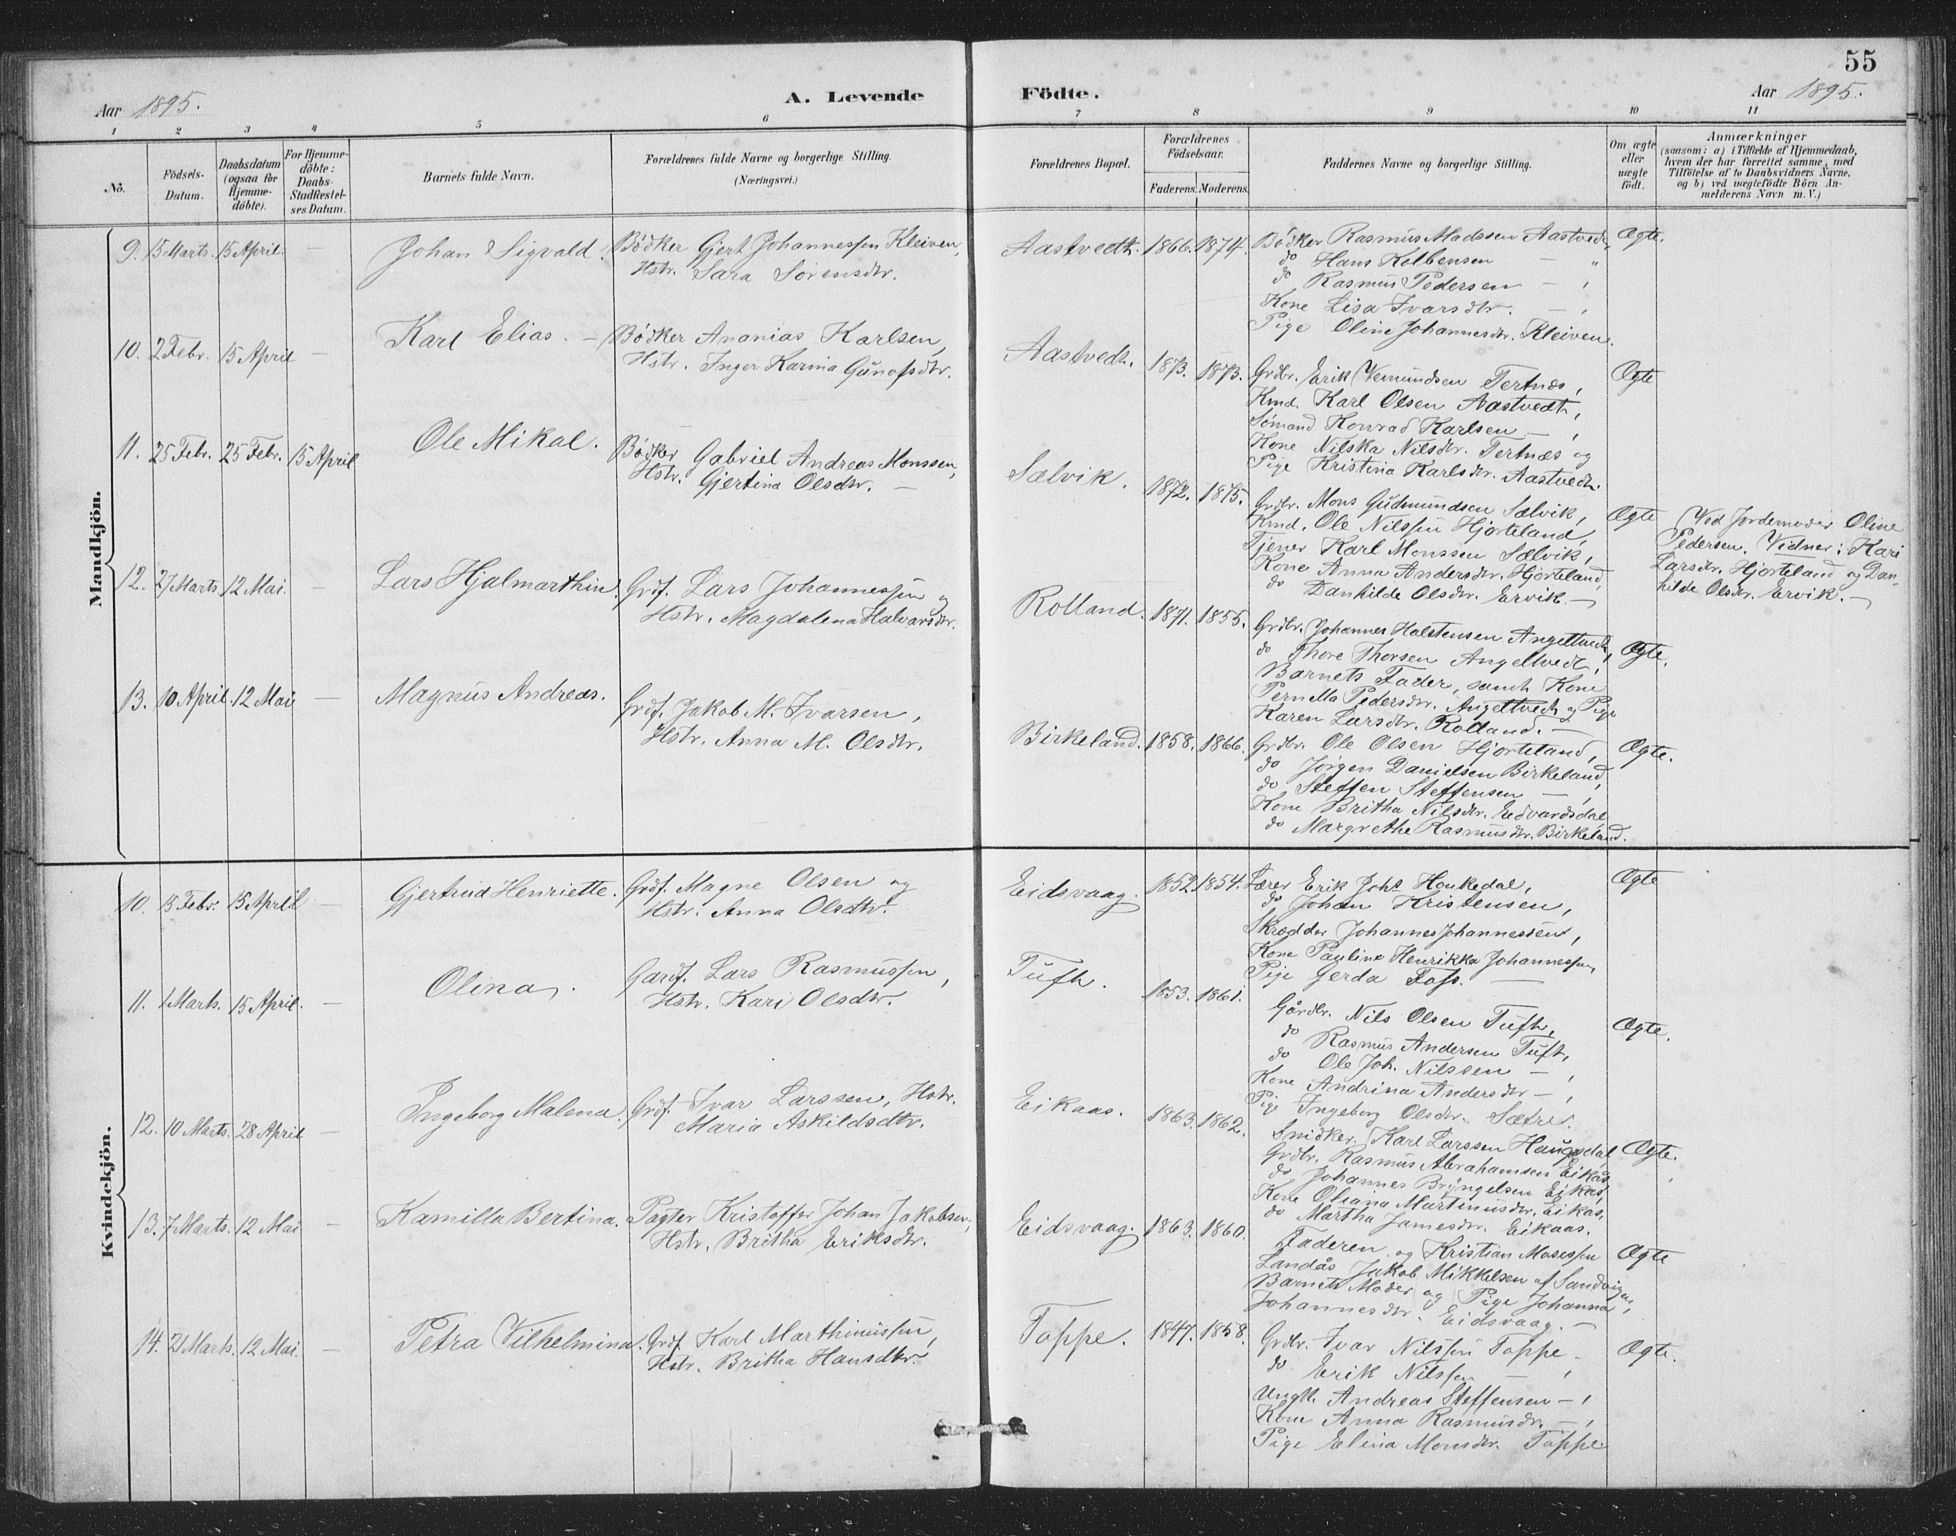 55
Aar 1895.
A. Levende Födte.
Aar 1895.
1 2 3 4 5 6 7 8 9 10 11
No.
Födsels-Datum.
Daabsdatum (ogsaa for Hjemme-döbte).
For Hjemme-döbte: Daabs-Stadfæstel-ses Datum.
Barnets fulde Navn.
Forældrenes fulde Navne og borgerlige Stilling.
(Næringsvei.)
Forældrenes Bopæl.
Forældrenes Födselsaar.
Faderens. Moderens.
Faddernes Navne og borgerlige Stilling.
Om ægte eller uægte födt.
Anmærkninger
(saasom: a) i Tilfælde af Hjemmedaab,
hvem der har forrettet samme, med
Tilföielse af to Daabsvidners Navne,
og b) ved uægtefödte Börn An-
melderens Navn m. V.)
Mandkjön.
9. 15 Marts. 15 April. — Johan Sigvald. Bödker Gjert Johannessen Kleiven,
Hstr. Sara Sörensdtr.
Aastvedt. 1866. 1874. Bödker Rasmus Madssen Aastvedt, Ægte.
do Hans Kolbensen — "
do Rasmus Pedersen — ,
Kone Lisa Ivarsdtr. — ,
Pige Oline Johannesdtr. Kleiven.
10. 2 Febr. 15 April — Karl Elias. — Bödker Ananias Karlsen,
Hstr. Inger Karina Gunofsdtr.
Aastvedt. 1873. 1873. Grdbr. Erik Vemundsen Tertnæs, Ægte
Kmd. Karl Olsen Aastvedt,
Sömand Konrad Karlsen — ,
Kone Nilska Nilsdtr. Tertnæs og
Pige Kristina Karlsdtr. Aastvedt.
11. 25 Febr. 25 Febr. 15 April Ole Mikal. Bödker Gabriel Andreas Monssen,
Hstr. Gjertina Olsdtr. —
Sælvik. 1872. 1875. Grdbr. Mons Gudmundsen Sælvik, Ægte
Kmd. Ole Nilssen Hjorteland,
Tjener Karl Monssen Sælvik,
Kone Anna Andersdtr. Hjorteland,
do Dankilde Olsdtr. Ervik. —
Ved Jordemoder Oline
Pedersen. Vidner: Kari
Larsdtr. Hjorteland og Dan-
kilde Olsdtr. Ervik. —
12. 27 Marts 12 Mai. — Lars Hjalmarthin. Grdf. Lars Johannessen og
Hstr. Magdalena Halvorsdtr.
Rolland. 1871. 1855. Grdbr. Johannes Halstensen Angeltvedt, Ægte.
do Thore Thorsen Angeltvedt,
Barnets Fader, samt Kone
Pernilla Pedersdtr. Angeltvedt og Pige
Karen Larsdtr. Rolland. —
13. 10 April. 12 Mai — Magnus Andreas. Grdf. Jakob M. Ivarsen,
Hstr. Anna M. Olsdtr.
Birkeland. 1858. 1866. Grdbr. Ole Olsen Hjorteland, Ægte.
do Jörgen Danielsen Birkeland,
do Steffen Steffensen — ,
Kone Britha Nilsdtr. Edvardsdal,
do Margrethe Rasmusdtr. Birkeland.
Kvindekjön.
10. 15 Febr. 15 April — Gjertrud Henriette. Grdf. Magne Olsen og
Hstr. Anna Olsdtr.
Eidsvaag. 1852. 1854. Lærer Erik Johs Haukedal, Ægte
do Johan Kristensen,
Skrædder Johannes Johannessen,
Kone Paulina Henrikka Johannessen,
Pige Gerda Foss. —
11. 1 Marts. 15 April. — Olina. Gardf. Lars Rasmussen,
Hstr. Kari Olsdtr.
Tuft. 1853. 1861. Gårdbr. Nils Olsen Tuft, Ægte.
do Rasmus Andersen Tuft,
do Ole Joh. Nilssen — ,
Kone Andrina Andersdtr — ,
Pige Ingeborg Olsdtr. Sætre.
12. 10 Marts. 28 April — Ingeborg Malena. Grdf. Ivar Larssen, Hstr.
Maria Askildsdtr.
Eikaas. 1863. 1862. Snidker Karl Larssen Haugsdal, Ægte.
Grdbr. Rasmus Abrahamsen Eikås,
do Johannes Bryngelsen Eikås,
Kone Oliana Martinusdtr. Eikås,
do Martha Jamesdtr. Eikaas.
13. 7 Marts. 12 Mai — Kamilla Bertina. Pagter Kristoffer Johan Jakobsen,
Hstr. Britha Eriksdtr.
Eidsvaag. 1863. 1860. Faderen og Kristian Mosessen Ægte
Landås, Jakob Mikkelsen af Sandvigen,
Barnets Moder og Pige Johanna
Johannesdtr. Eidsvaag. —
14. 21 Marts. 12 Mai. — Petra Vilhelmina. Grdf. Karl Marthinussen,
Hstr. Britha Hansdtr.
Toppe. 1847. 1858. Grdbr. Ivar Nilssen Toppe — Ægte.
do Erik Nilssen — ,
Ungk. Andreas Steffensen — ,
Kone Anna Rasmusdtr. — ,
Pige Elina Monsdtr. Toppe